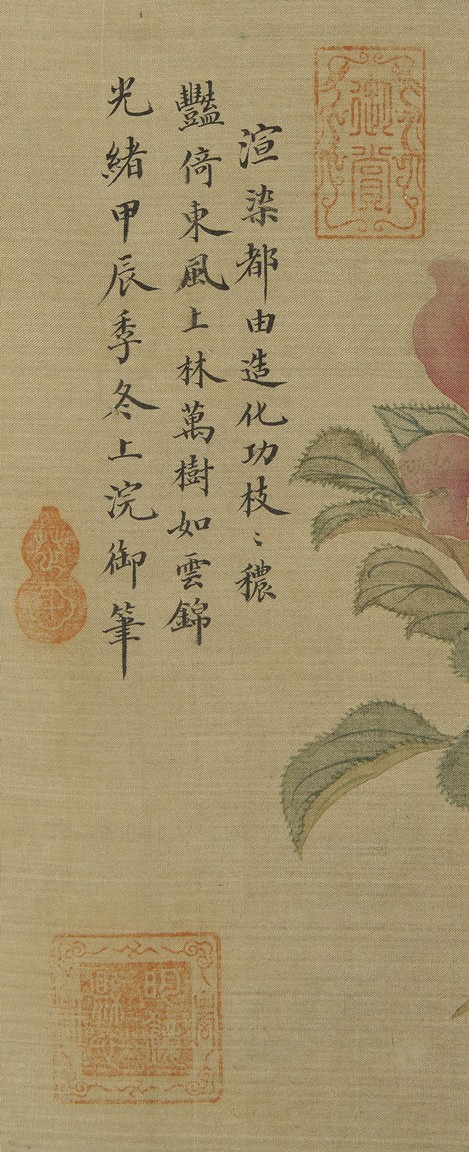 渲染都由造化功枝〻穠
豔倚東風上林萬樹如雲錦
光緒甲辰季冬上浣御筆
御賞